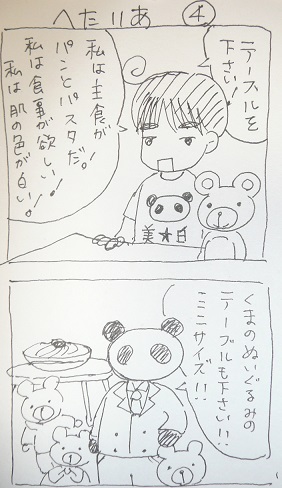 へたりあ ④
テーブルを
下さい!
私は主食が
パンとパスタだ。!
私は食事が欲しい!
私は肌の色が白い。!
美★白
くまのぬいぐるみの
テーブルも下さい!!
ミニサイズ!!